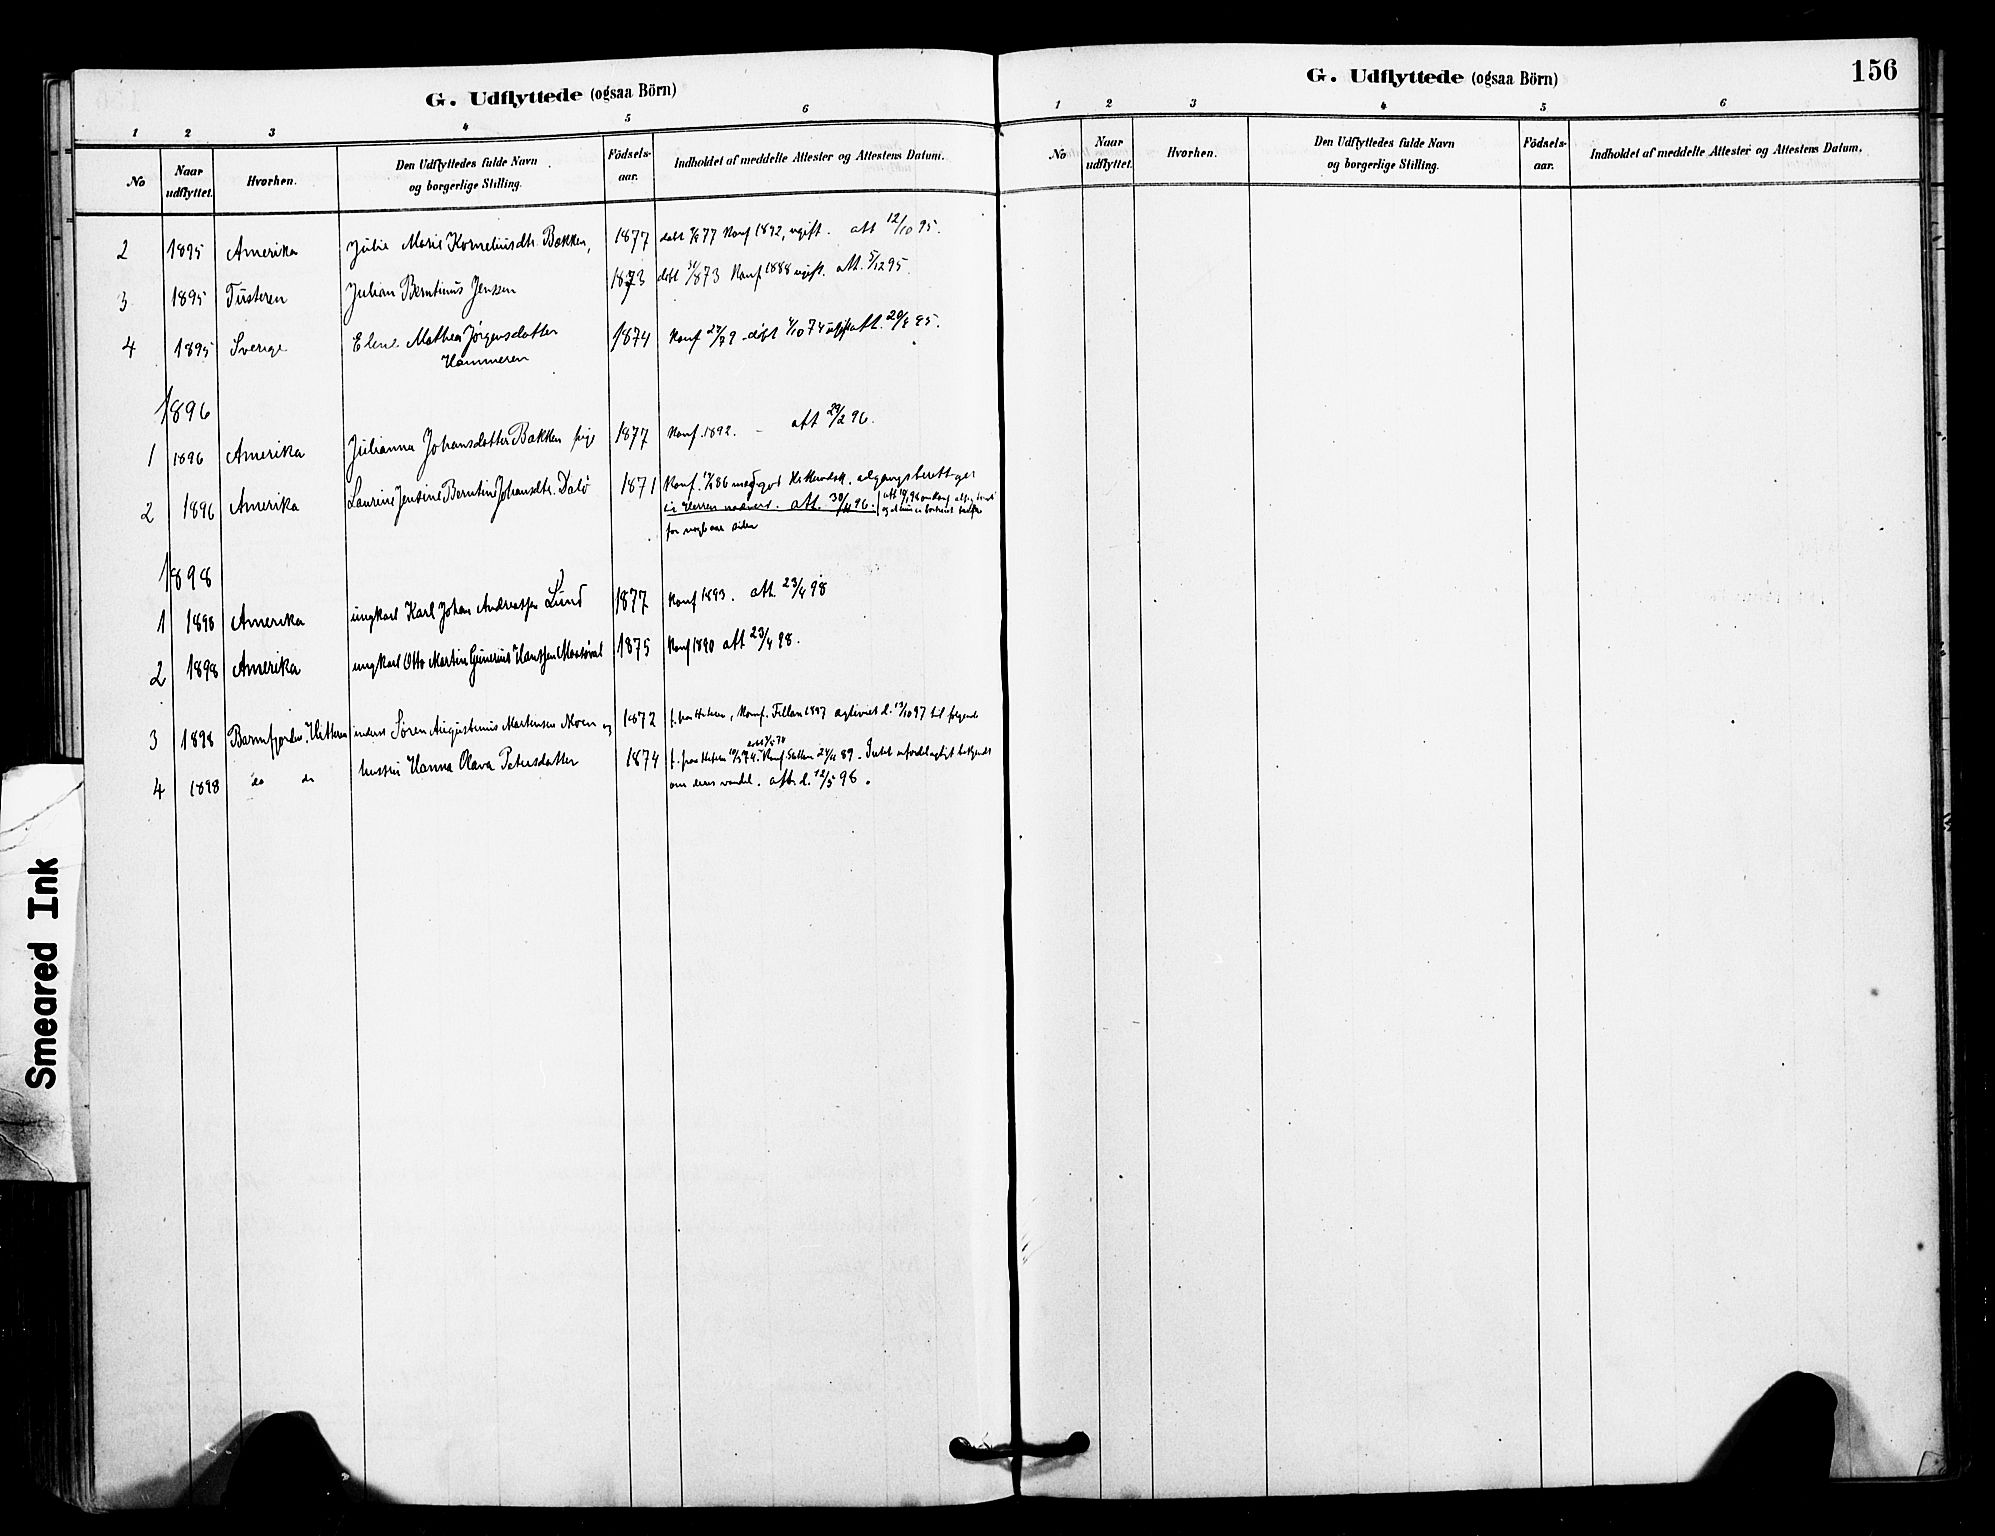 G. Udflyttede (ogsaa Börn)
1 2 3 4 5 6
No Naar udflyttet. Hvorhen. Den Udflyttedes fulde Navn og borgerlige Stilling. Födsels-aar. Indholdet af meddelte Attester og Attestens Datum.
2 1895 Amerika Julie Marie Korneliusdtr. Bakken, 1877 døbt 77 Konf 1892, ugift. att 12/10 95.
3 1895 Tusteren Julian Berntinus Jenssen 1873 døbt 31/8 73 Konf. 1888 ugift. att. 5/12 95.
4 1895 Sverige Mathea Jørgensdatter 1874 Konf døbt 4/10 74 ugift att. 95.
Hammeren
1896
1 1896 Amerika Julianna Johansdatter Bakken pige 1877 Konf. 1892. – att 29/2 96.
2 1896 Amerika Laurine Jentine Berntine Johansdtr. Dalø 1871 Konf. 86 meg. god Kr. adgangsberettiget
til Herrens nadverd. att. 96.
for nogle aar siden
1898
1 1898 Amerika ungkarl Karl Johan Andreassen Lund 1877 Konf 1893. att. 23/4 98
2 1898 Amerika ungkarl Otto Martin Gunerius Hanssen 1875 Konf 1890 att 23/4 98.
3 1898 Barmfjorden, Hitteren inderst Søren Augustinus Martensen Moen og 1872 Konf. Fillan 1887 d. 13/10 97
4 1898 do do hustru Hanna Olava Petersdatter 1874 Konf. 89. Intet ufordelagtigt bekjendt
om deres vandel. att. d. 12/5 98.
G. Udflyttede (ogsaa Börn)
156
1 2 3 4 5 6
No Naar udflyttet. Hvorhen. Den Udflyttedes fulde Navn og borgerlige Stilling. Födsels-aar. Indholdet af meddelte Attester og Attestens Datum.
Smeared Ink